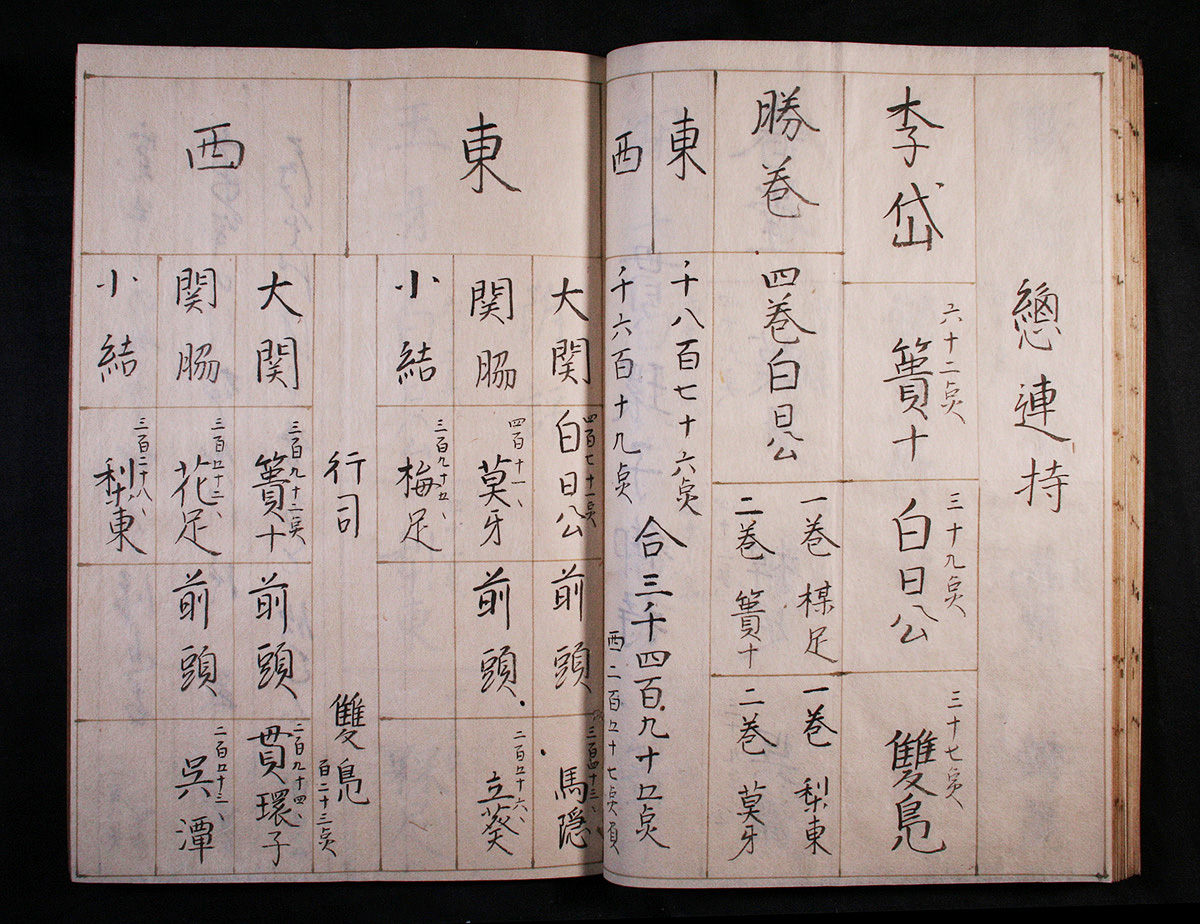 總連持
李岱
六十二点
簣十
三十九点
白日公
三十七点
雙鳧
勝巻
四巻白日公
一巻 楳足
二巻 簣十
一巻 梨東
二巻 莫牙
東
千八百七十六点
西
千六百十九点
合三千四百九十五点
西二百五十七点負
東
大関
四百七十一点
白日公
前頭
三百四十三、
馬隠
関脇
四百十一、
莫牙
前頭
二百五十六、
立葵
小結
三百九十五、
梅足
行司
雙鳧
百二十三点
西
大関
三百九十二点
簣十
前頭
二百九十四、
貫環子
関脇
三百五十二、
花足
前頭
二百五十三、
呉潭
小結
三百二十八、
梨東